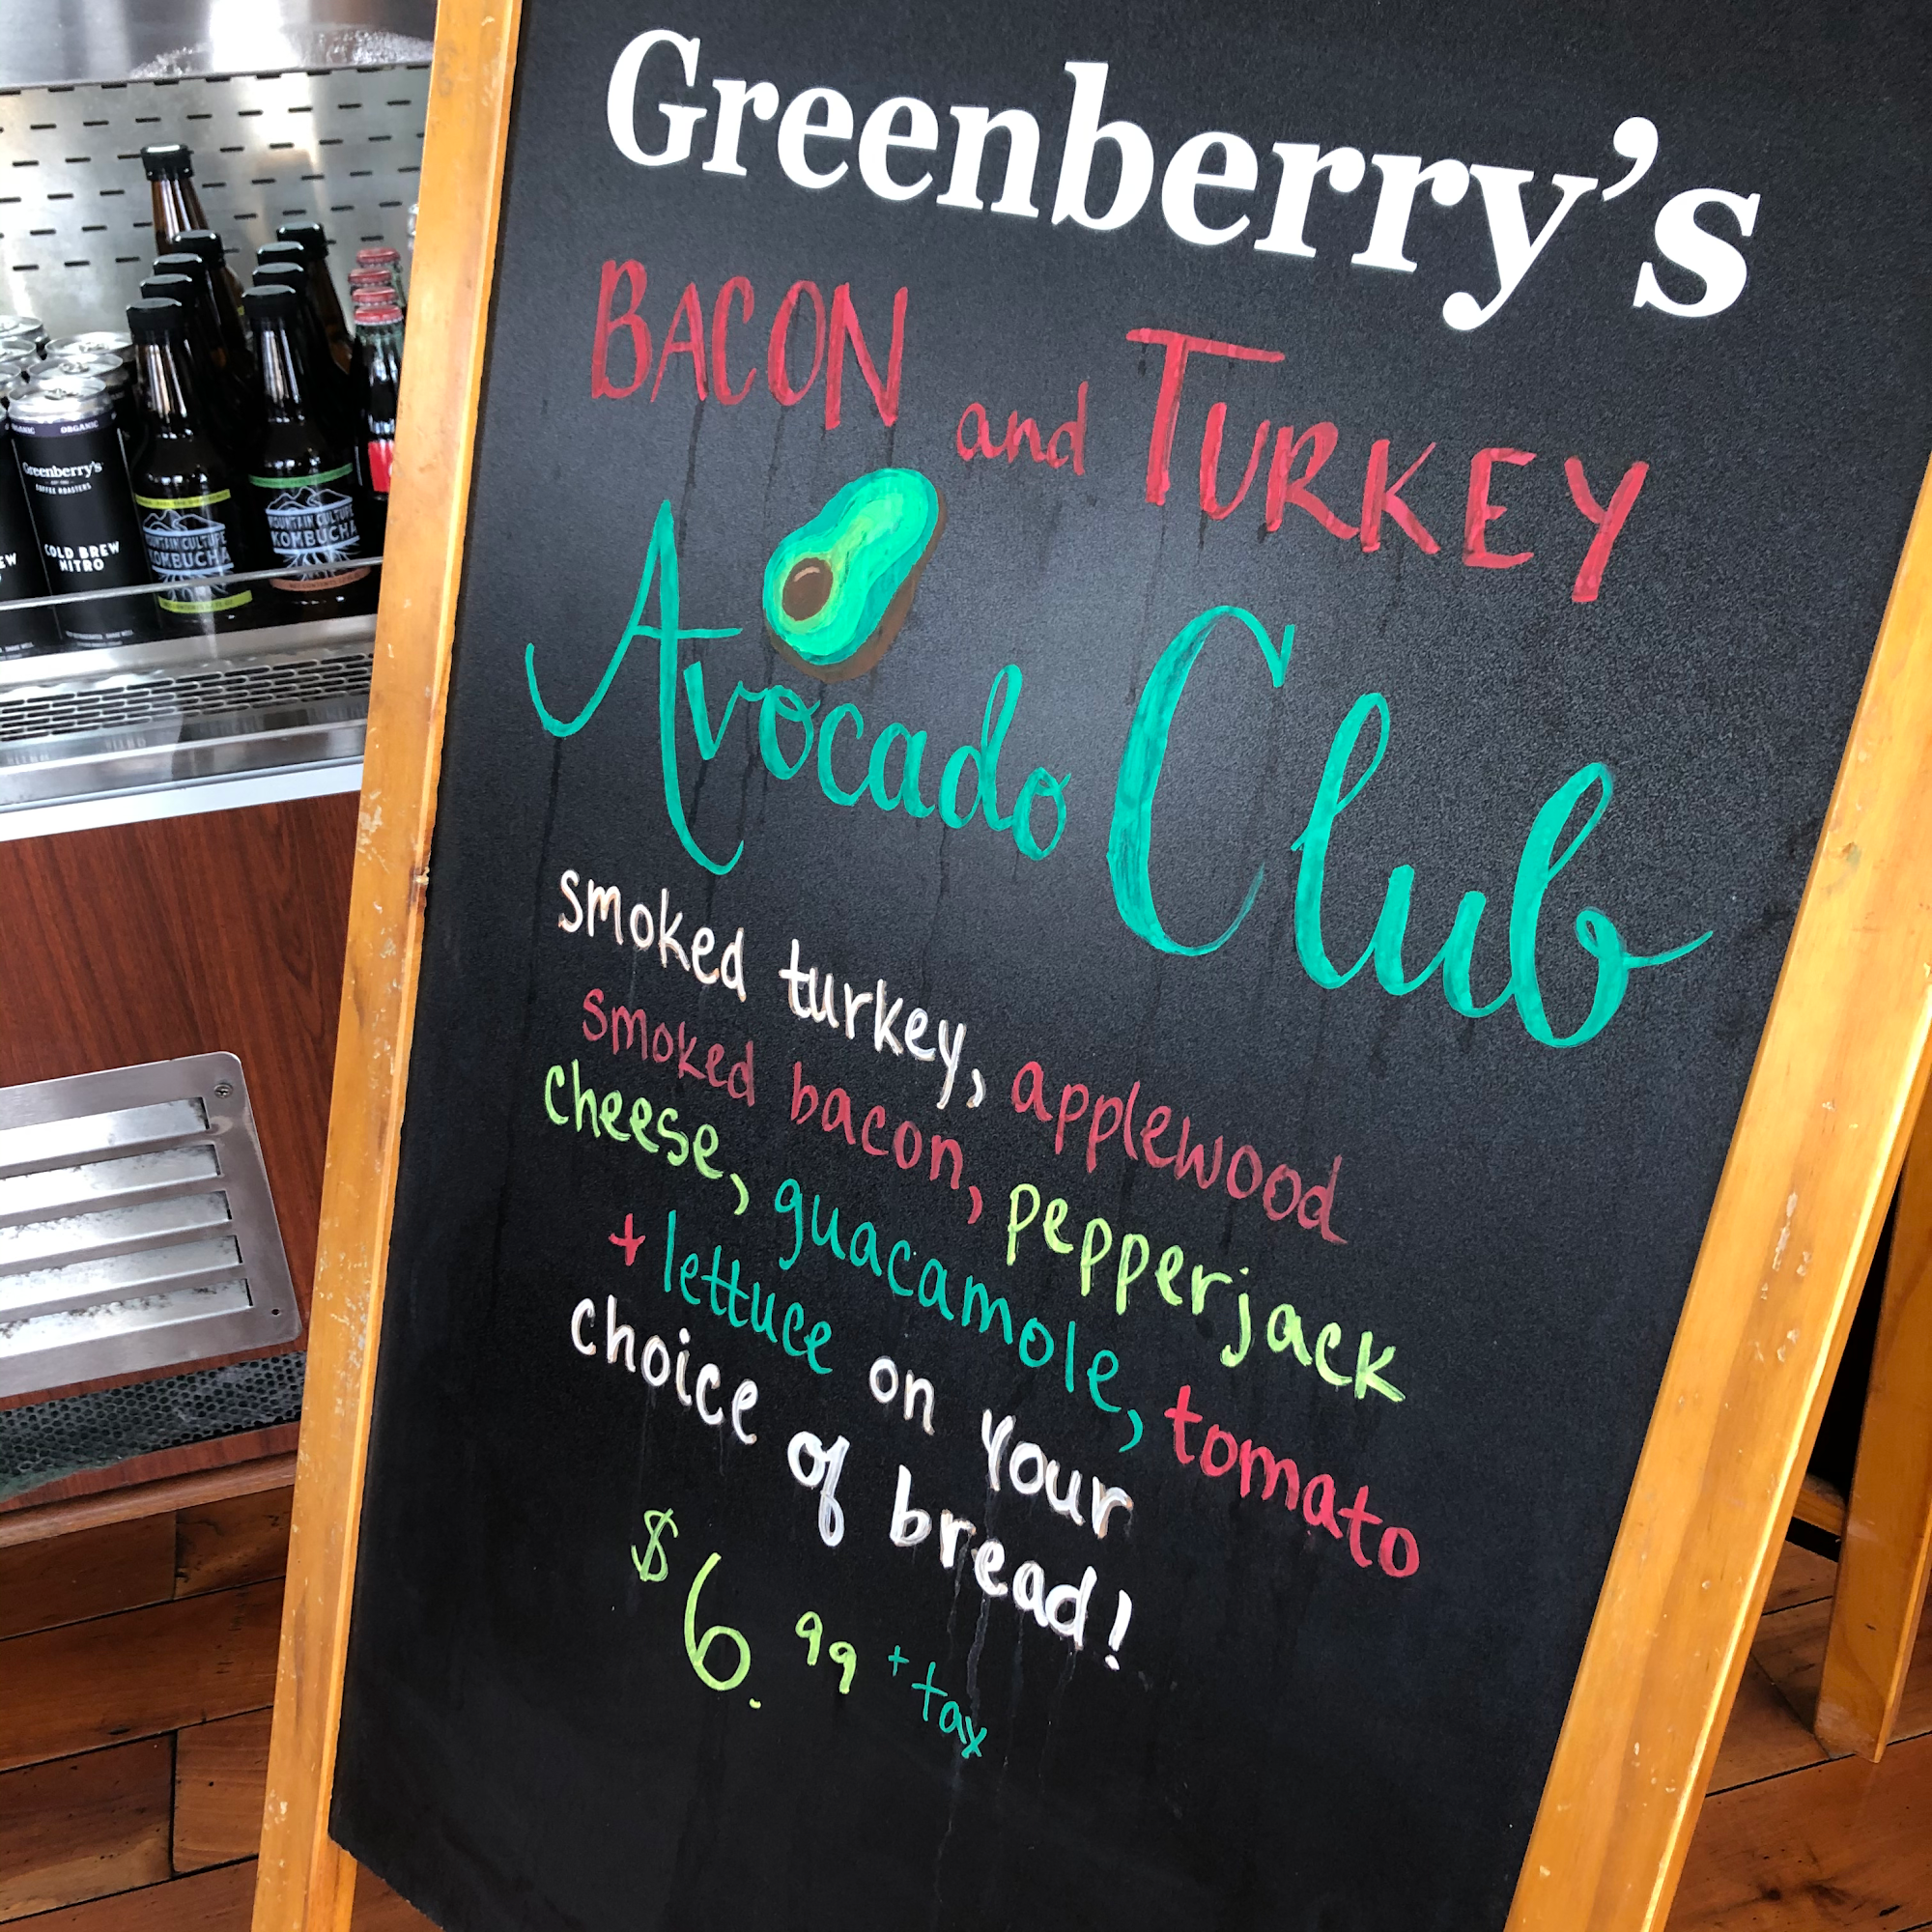 Greenberry's
BACON and TURKEY
Avocado Club
smoked turkey, applewood
smoked bacon, pepperjack
cheese, guacamole, tomato
+ lettuce on your
choice of bread!
$6.99 + tax
ORGANIC
Greenberry's
COFFEE ROASTERS
COLD BREW
NITRO
MOUNTAIN CULTURE
KOMBUCHA
MOUNTAIN CULTURE
KOMBUCHA